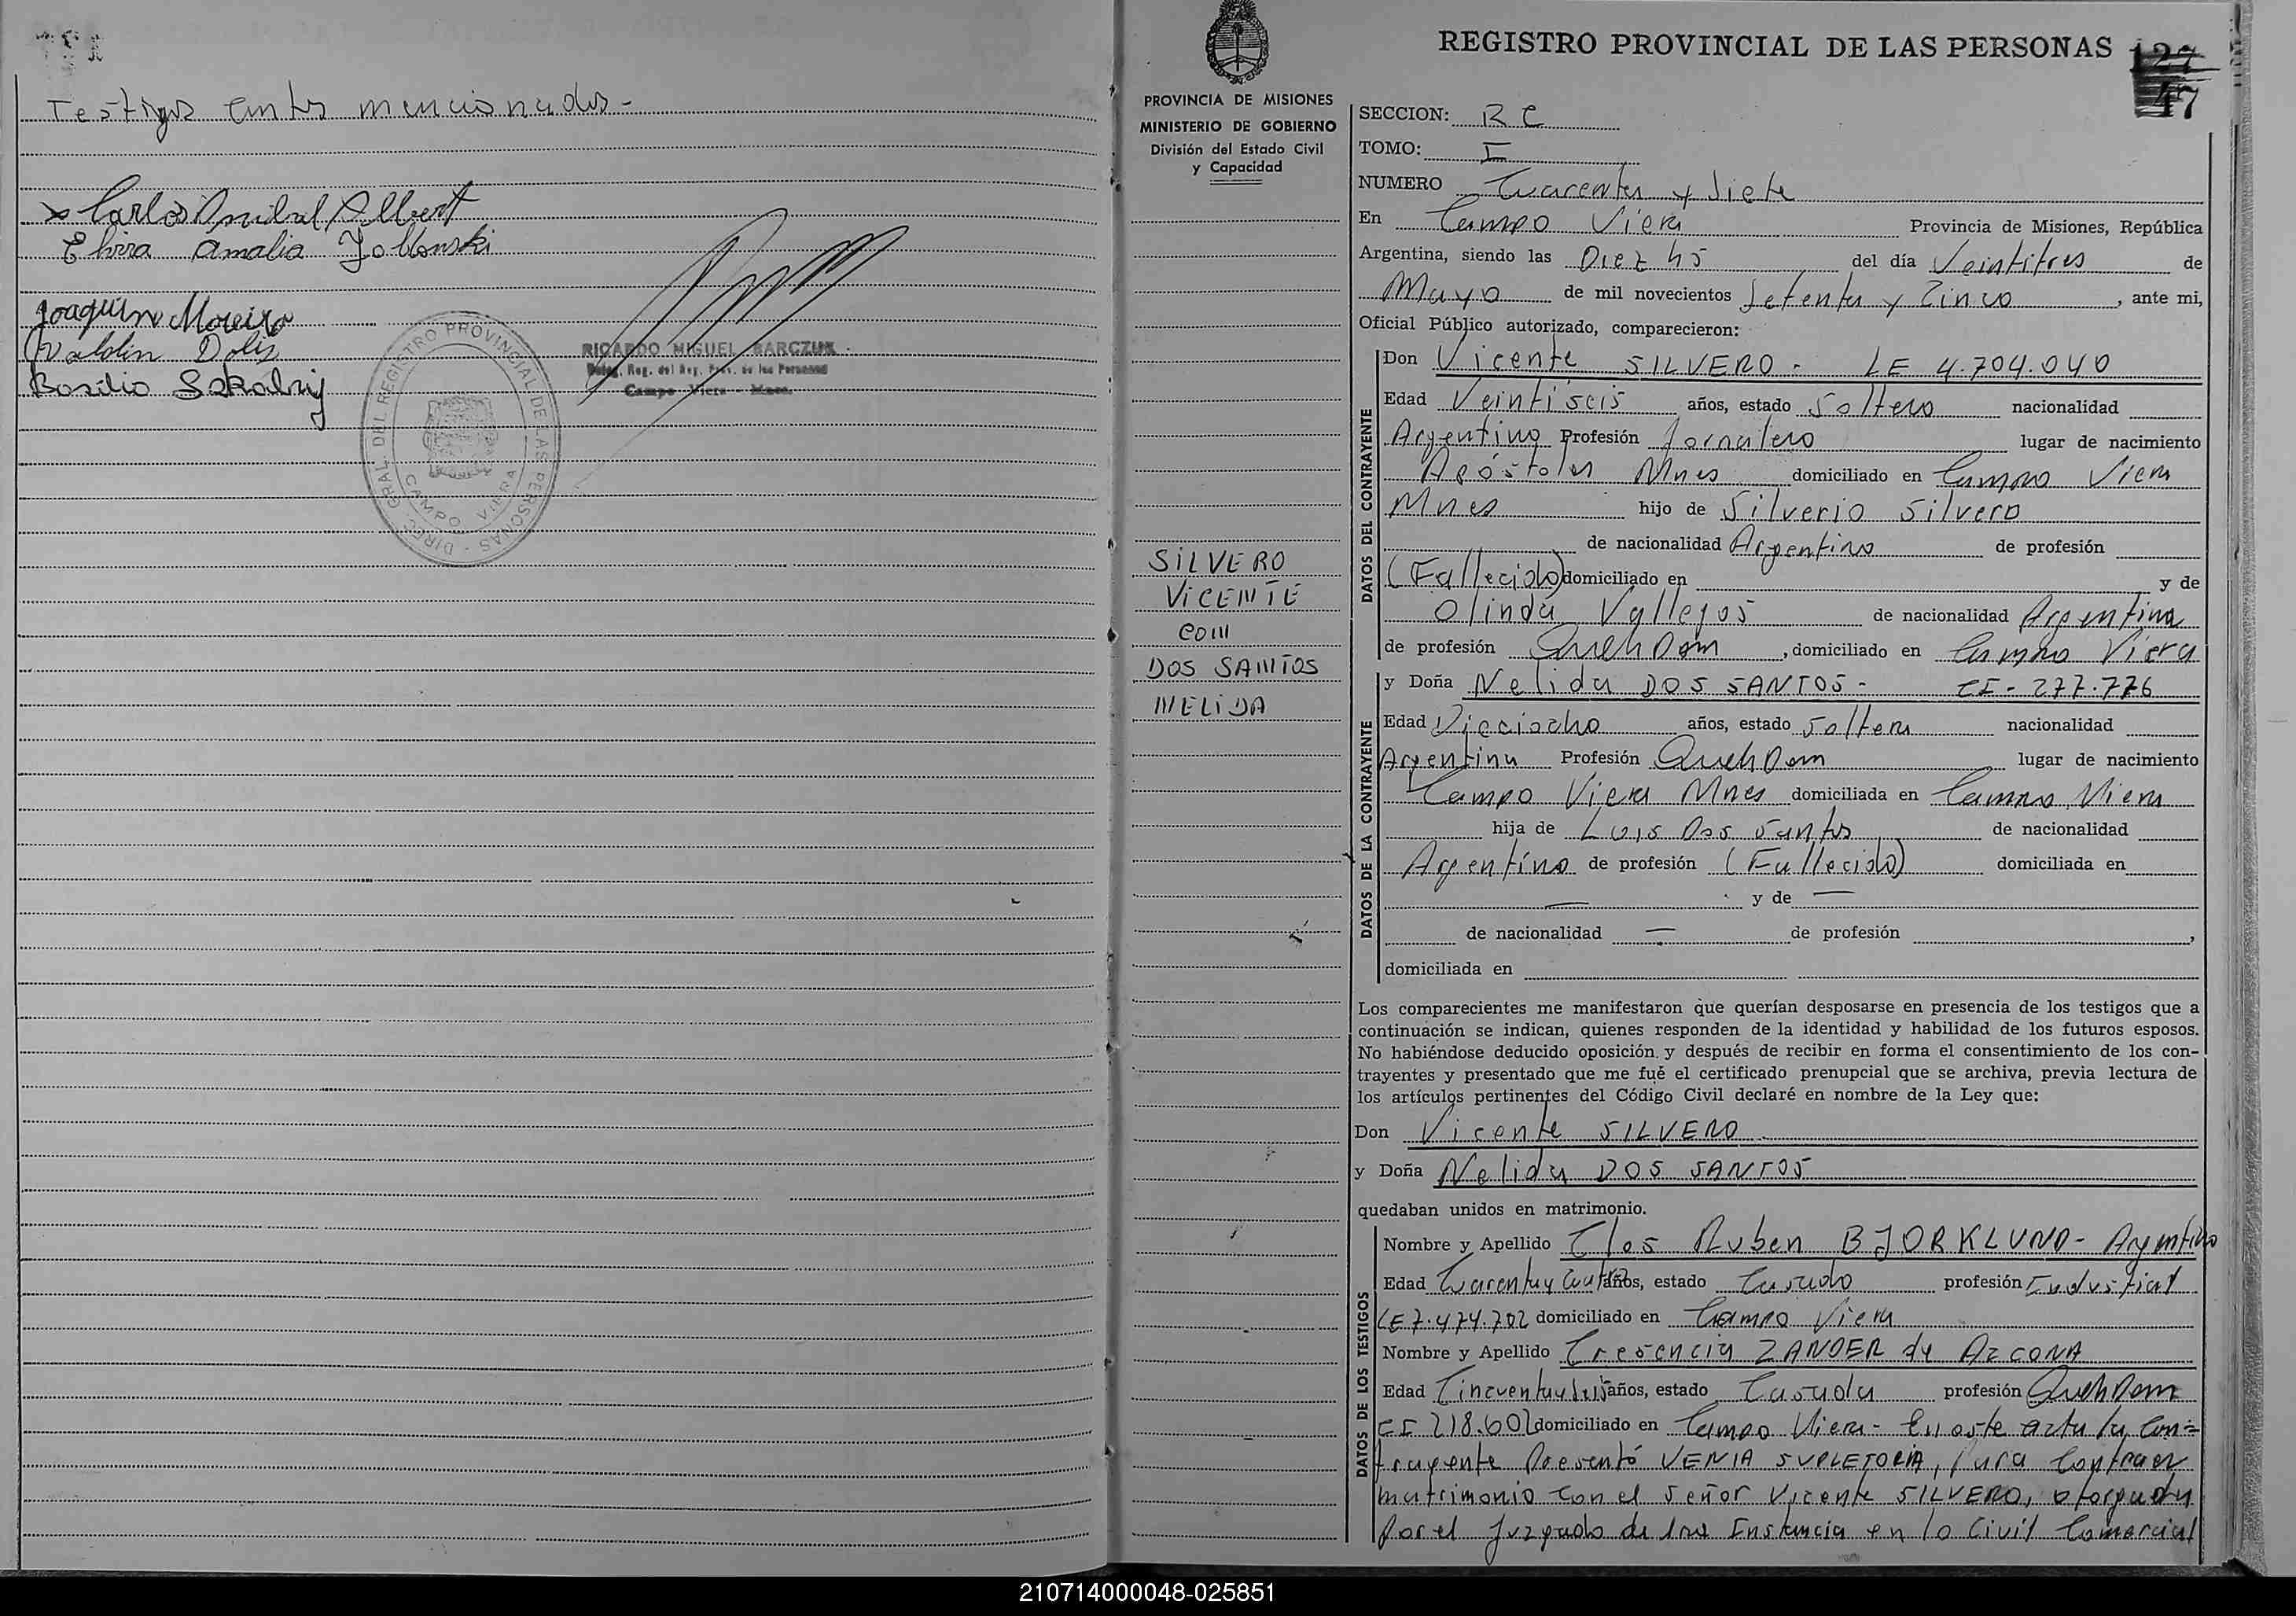 Testigos antes mencionados-
Carlos Anibal Albert
Elvira Amalia Jablonski
Joaquin Moreira
Valdin Dolis
Basilio Sakalnij
DIREC. GRAL. DEL REGISTRO PROVINCIAL DE LAS PERSONAS -
CAMPO VIERA
RICARDO MIGUEL BARCZUK
Deleg. Reg. del Reg. Prov. de las Personas
Campo Viera - Mnes.
REGISTRO PROVINCIAL DE LAS PERSONAS
127
47
PROVINCIA DE MISIONES
MINISTERIO DE GOBIERNO
División del Estado Civil
y Capacidad
SILVERO
VICENTE
CON
DOS SANTOS
NELIDA
SECCION: RC
TOMO: I
NUMERO Cuarenta y Siete
En Campo Viera Provincia de Misiones, República
Argentina, siendo las Diez 45 del día Veintitres de
Mayo de mil novecientos Setenta y Cinco, ante mi,
Oficial Público autorizado, comparecieron:
DATOS DEL CONTRAYENTE
Don Vicente SILVERO - LE 4.704.040
Edad Veintiseis años, estado Soltero nacionalidad
Argentino Profesión Jornalero lugar de nacimiento
Apóstoles Mnes domiciliado en Campo Viera
Mnes hijo de Silverio Silvero
de nacionalidad Argentino de profesión
(Fallecido) domiciliado en y de
Olinda Vallejos de nacionalidad Argentina
de profesión Queh Dom, domiciliado en Campo Viera
DATOS DE LA CONTRAYENTE
y Doña Nelida DOS SANTOS - CI - 277.776
Edad Dieciocho años, estado Soltera nacionalidad
Argentina Profesión Queh Dom lugar de nacimiento
Campo Viera Mnes domiciliada en Campo Viera
hija de Luis Dos Santos de nacionalidad
Argentino de profesión (Fallecido) domiciliada en
— y de —
de nacionalidad — de profesión ,
domiciliada en
Los comparecientes me manifestaron que querían desposarse en presencia de los testigos que a
continuación se indican, quienes responden de la identidad y habilidad de los futuros esposos.
No habiéndose deducido oposición y después de recibir en forma el consentimiento de los con-
trayentes y presentado que me fué el certificado prenupcial que se archiva, previa lectura de
los artículos pertinentes del Código Civil declaré en nombre de la Ley que:
Don Vicente SILVERO
y Doña Nelida DOS SANTOS
quedaban unidos en matrimonio.
DATOS DE LOS TESTIGOS
Nombre y Apellido Clos Ruben BJORKLUND - Argentino
Edad Cuarenta y Cuatro años, estado Casado profesión Industrial
LE 7.474.702 domiciliado en Campo Viera
Nombre y Apellido Cresencia ZANDER de AZCONA
Edad Cincuenta y Seis años, estado Casada profesión Queh Dom
CI 218.602 domiciliado en Campo Viera - En este acto la Con=
trayente Presentó VENIA SUPLETORIA, para Contraer
matrimonio con el Señor Vicente SILVERO, otorgada
por el Juzgado de 1ra Instancia en lo Civil Comercial
210714000048-025851